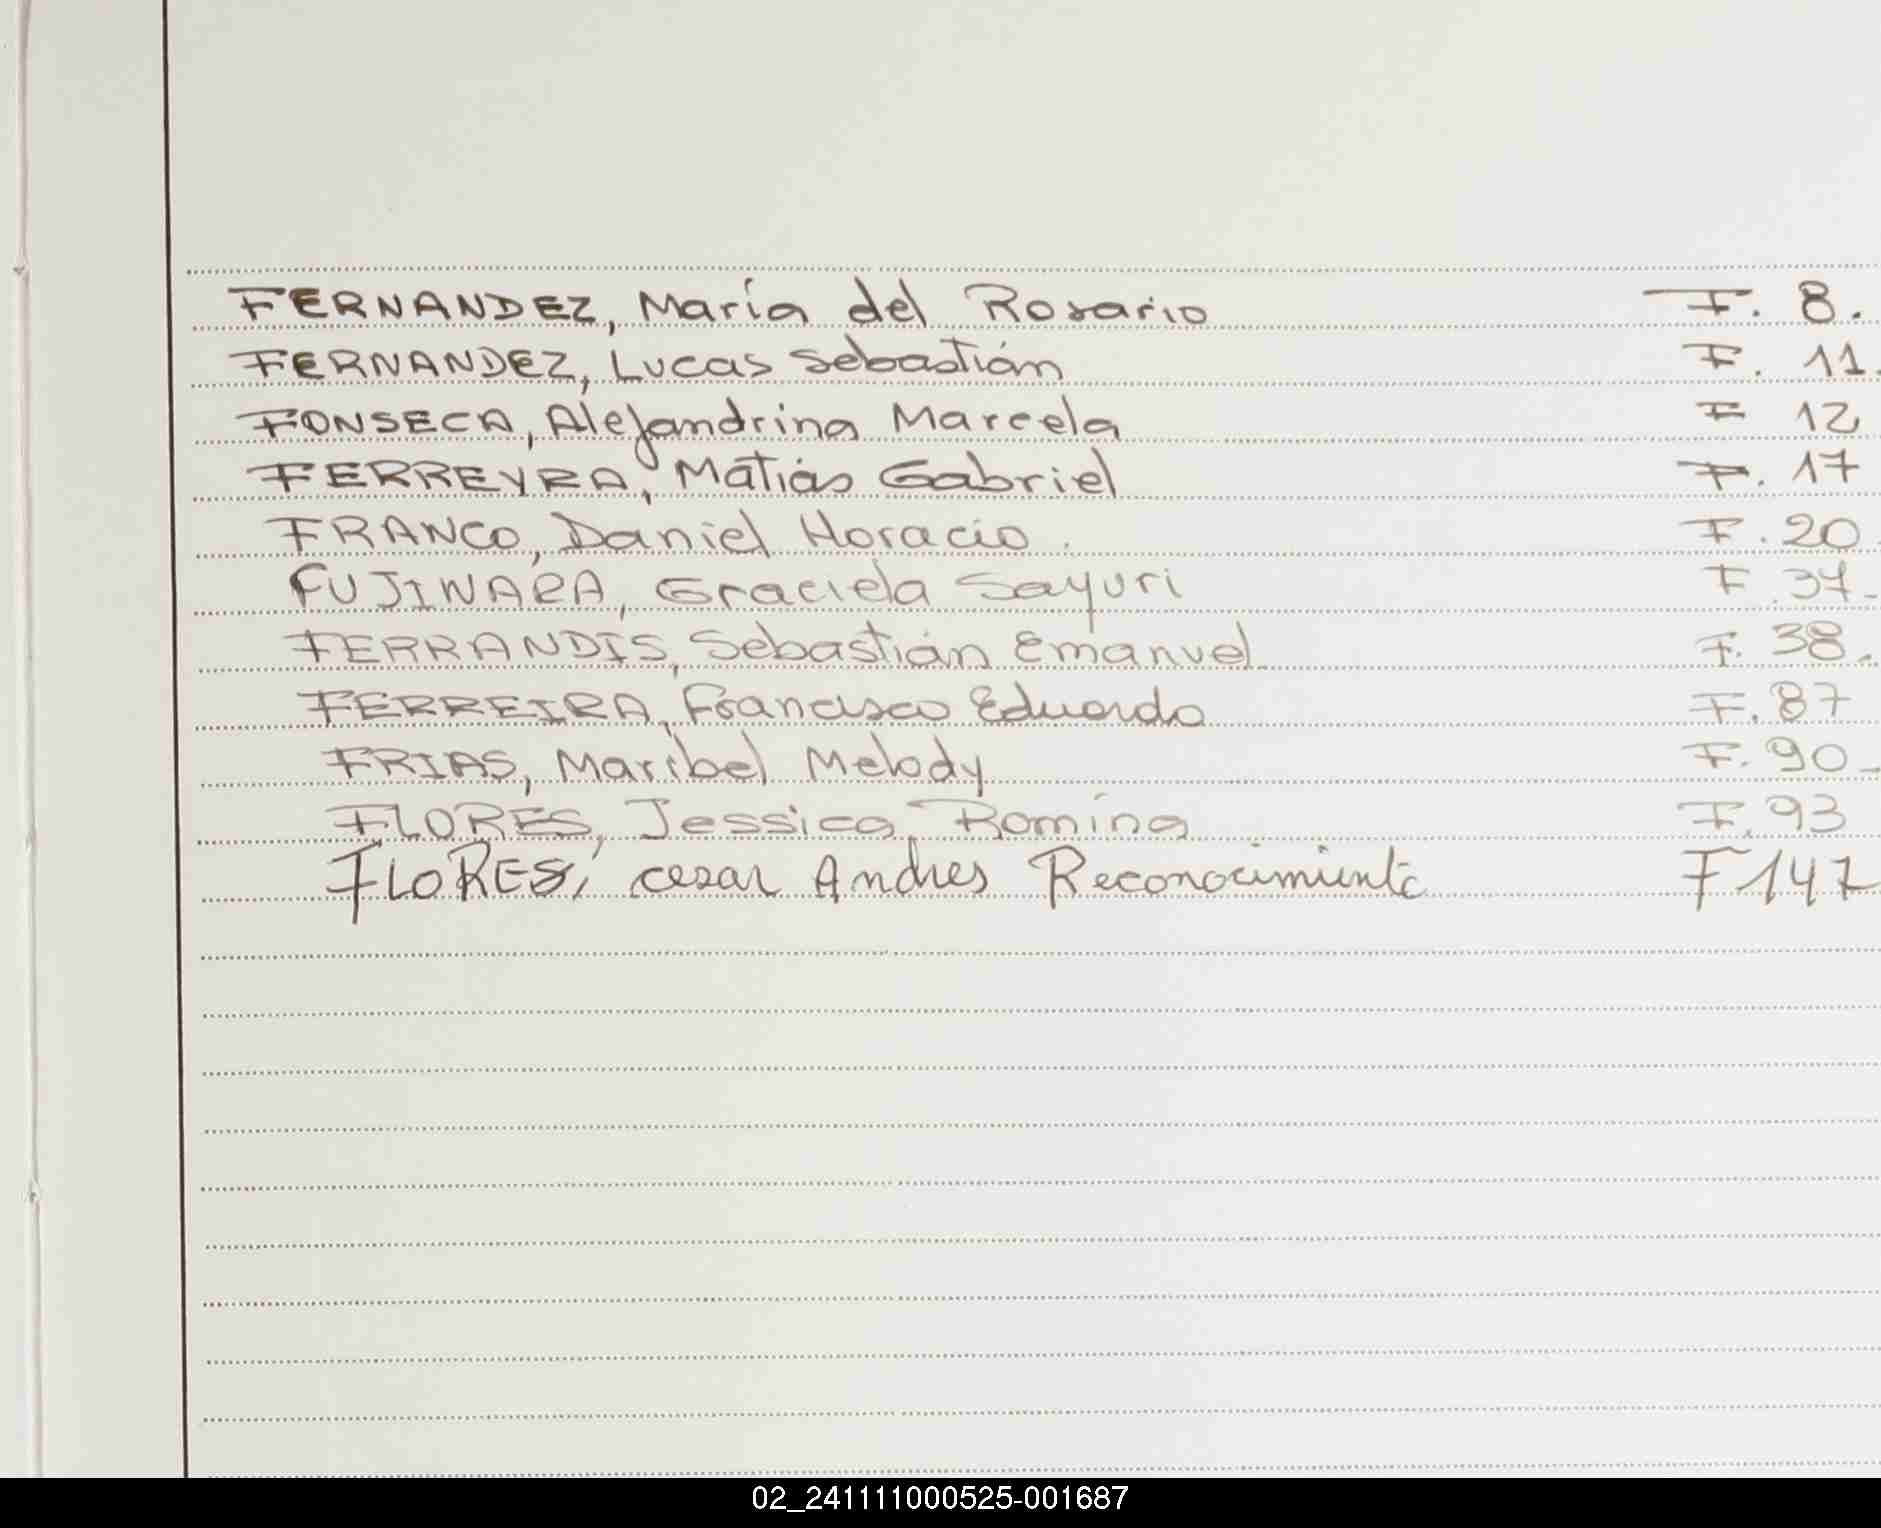 FERNANDEZ, María del Rosario F. 8.
FERNANDEZ, Lucas Sebastián F. 11.
FONSECA, Alejandrina Marcela F 12
FERREYRA, Matías Gabriel F. 17
FRANCO, Daniel Horacio. F. 20.
FUJIWARA, Graciela Sayuri F. 37-
FERRANDIS, Sebastián Emanuel F. 38.
FERREIRA, Francisco Eduardo F. 87
FRIAS, Maribel Melody F. 90-
FLORES, Jessica Romina F. 93
FLORES, cesar Andres Reconocimiento F 147
02_241111000525-001687